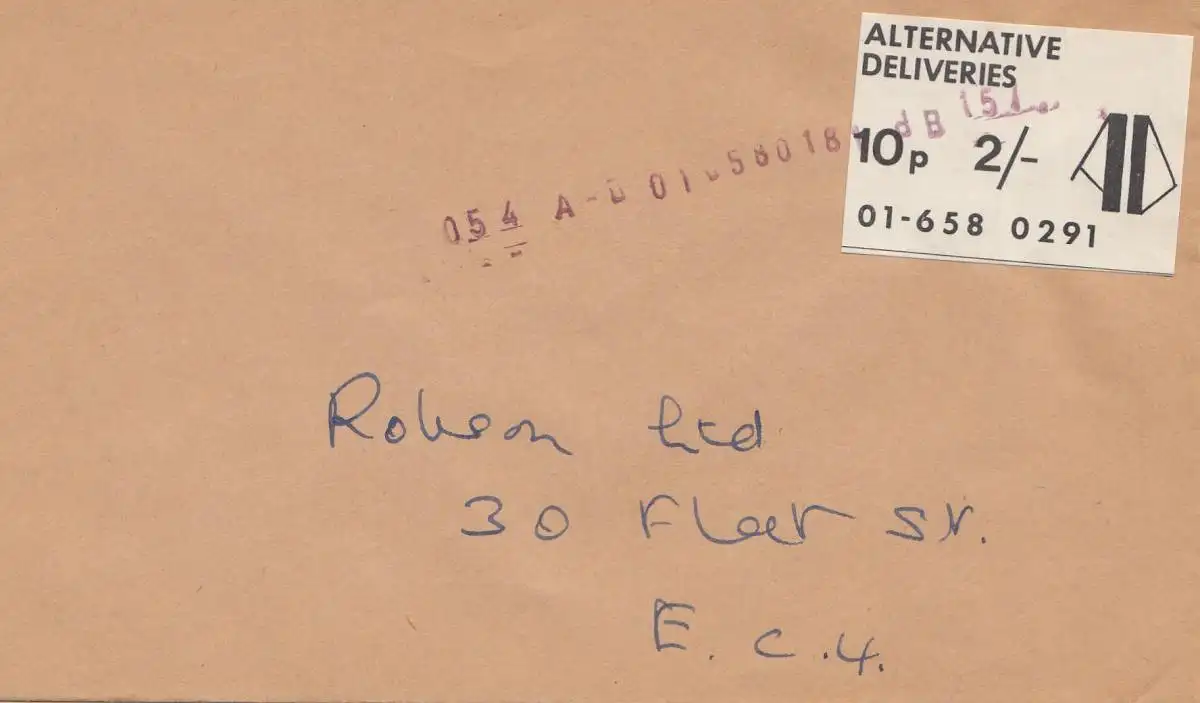 ALTERNATIVE
DELIVERIES
10p 2/-
01-658 0291
054 A-D 01
Robson Ltd
30 Fleet St.
E.C.4.